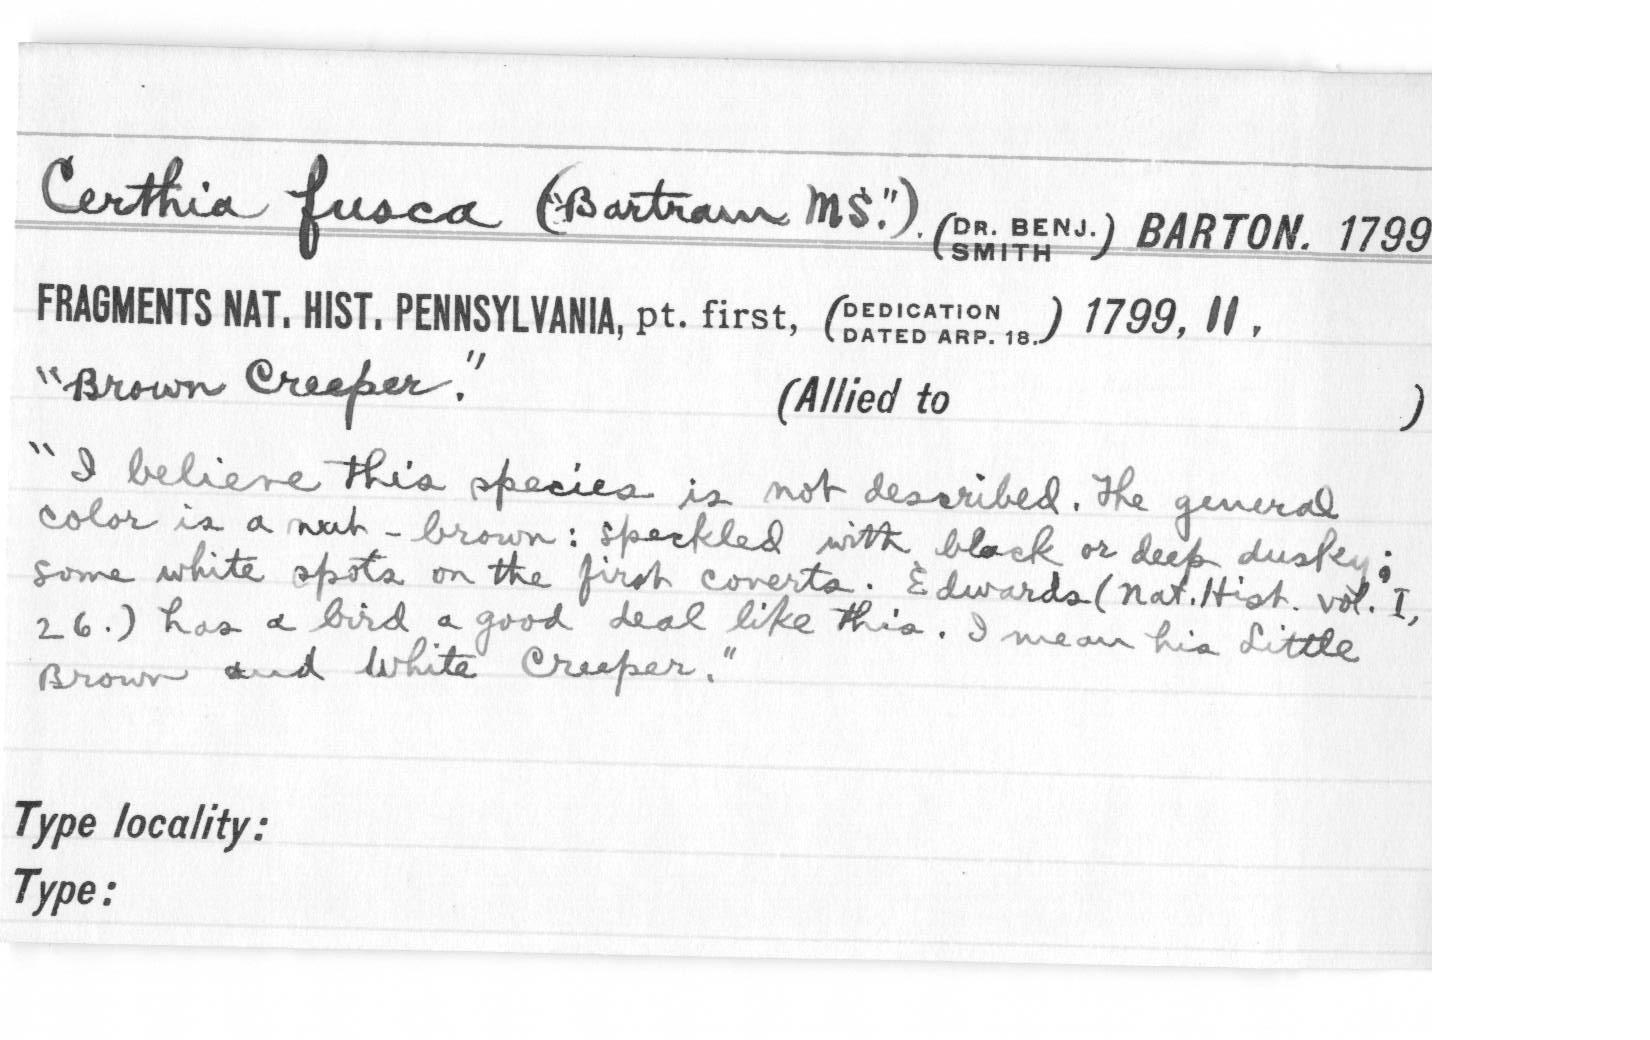 Certhia fusca ("Bartram MS."). (DR. BENJ. SMITH) BARTON. 1799
FRAGMENTS NAT. HIST. PENNSYLVANIA, pt. first, (DEDICATION DATED ARP. 18.) 1799, 11,
"Brown Creeper." (Allied to )
"I believe this species is not described. The general
color is a nut-brown: speckled with black or deep dusky;
some white spots on the first coverts. Edwards (Nat. Hist. vol. I,
26.) has a bird a good deal like this. I mean his Little
Brown and White Creeper."
Type locality:
Type: